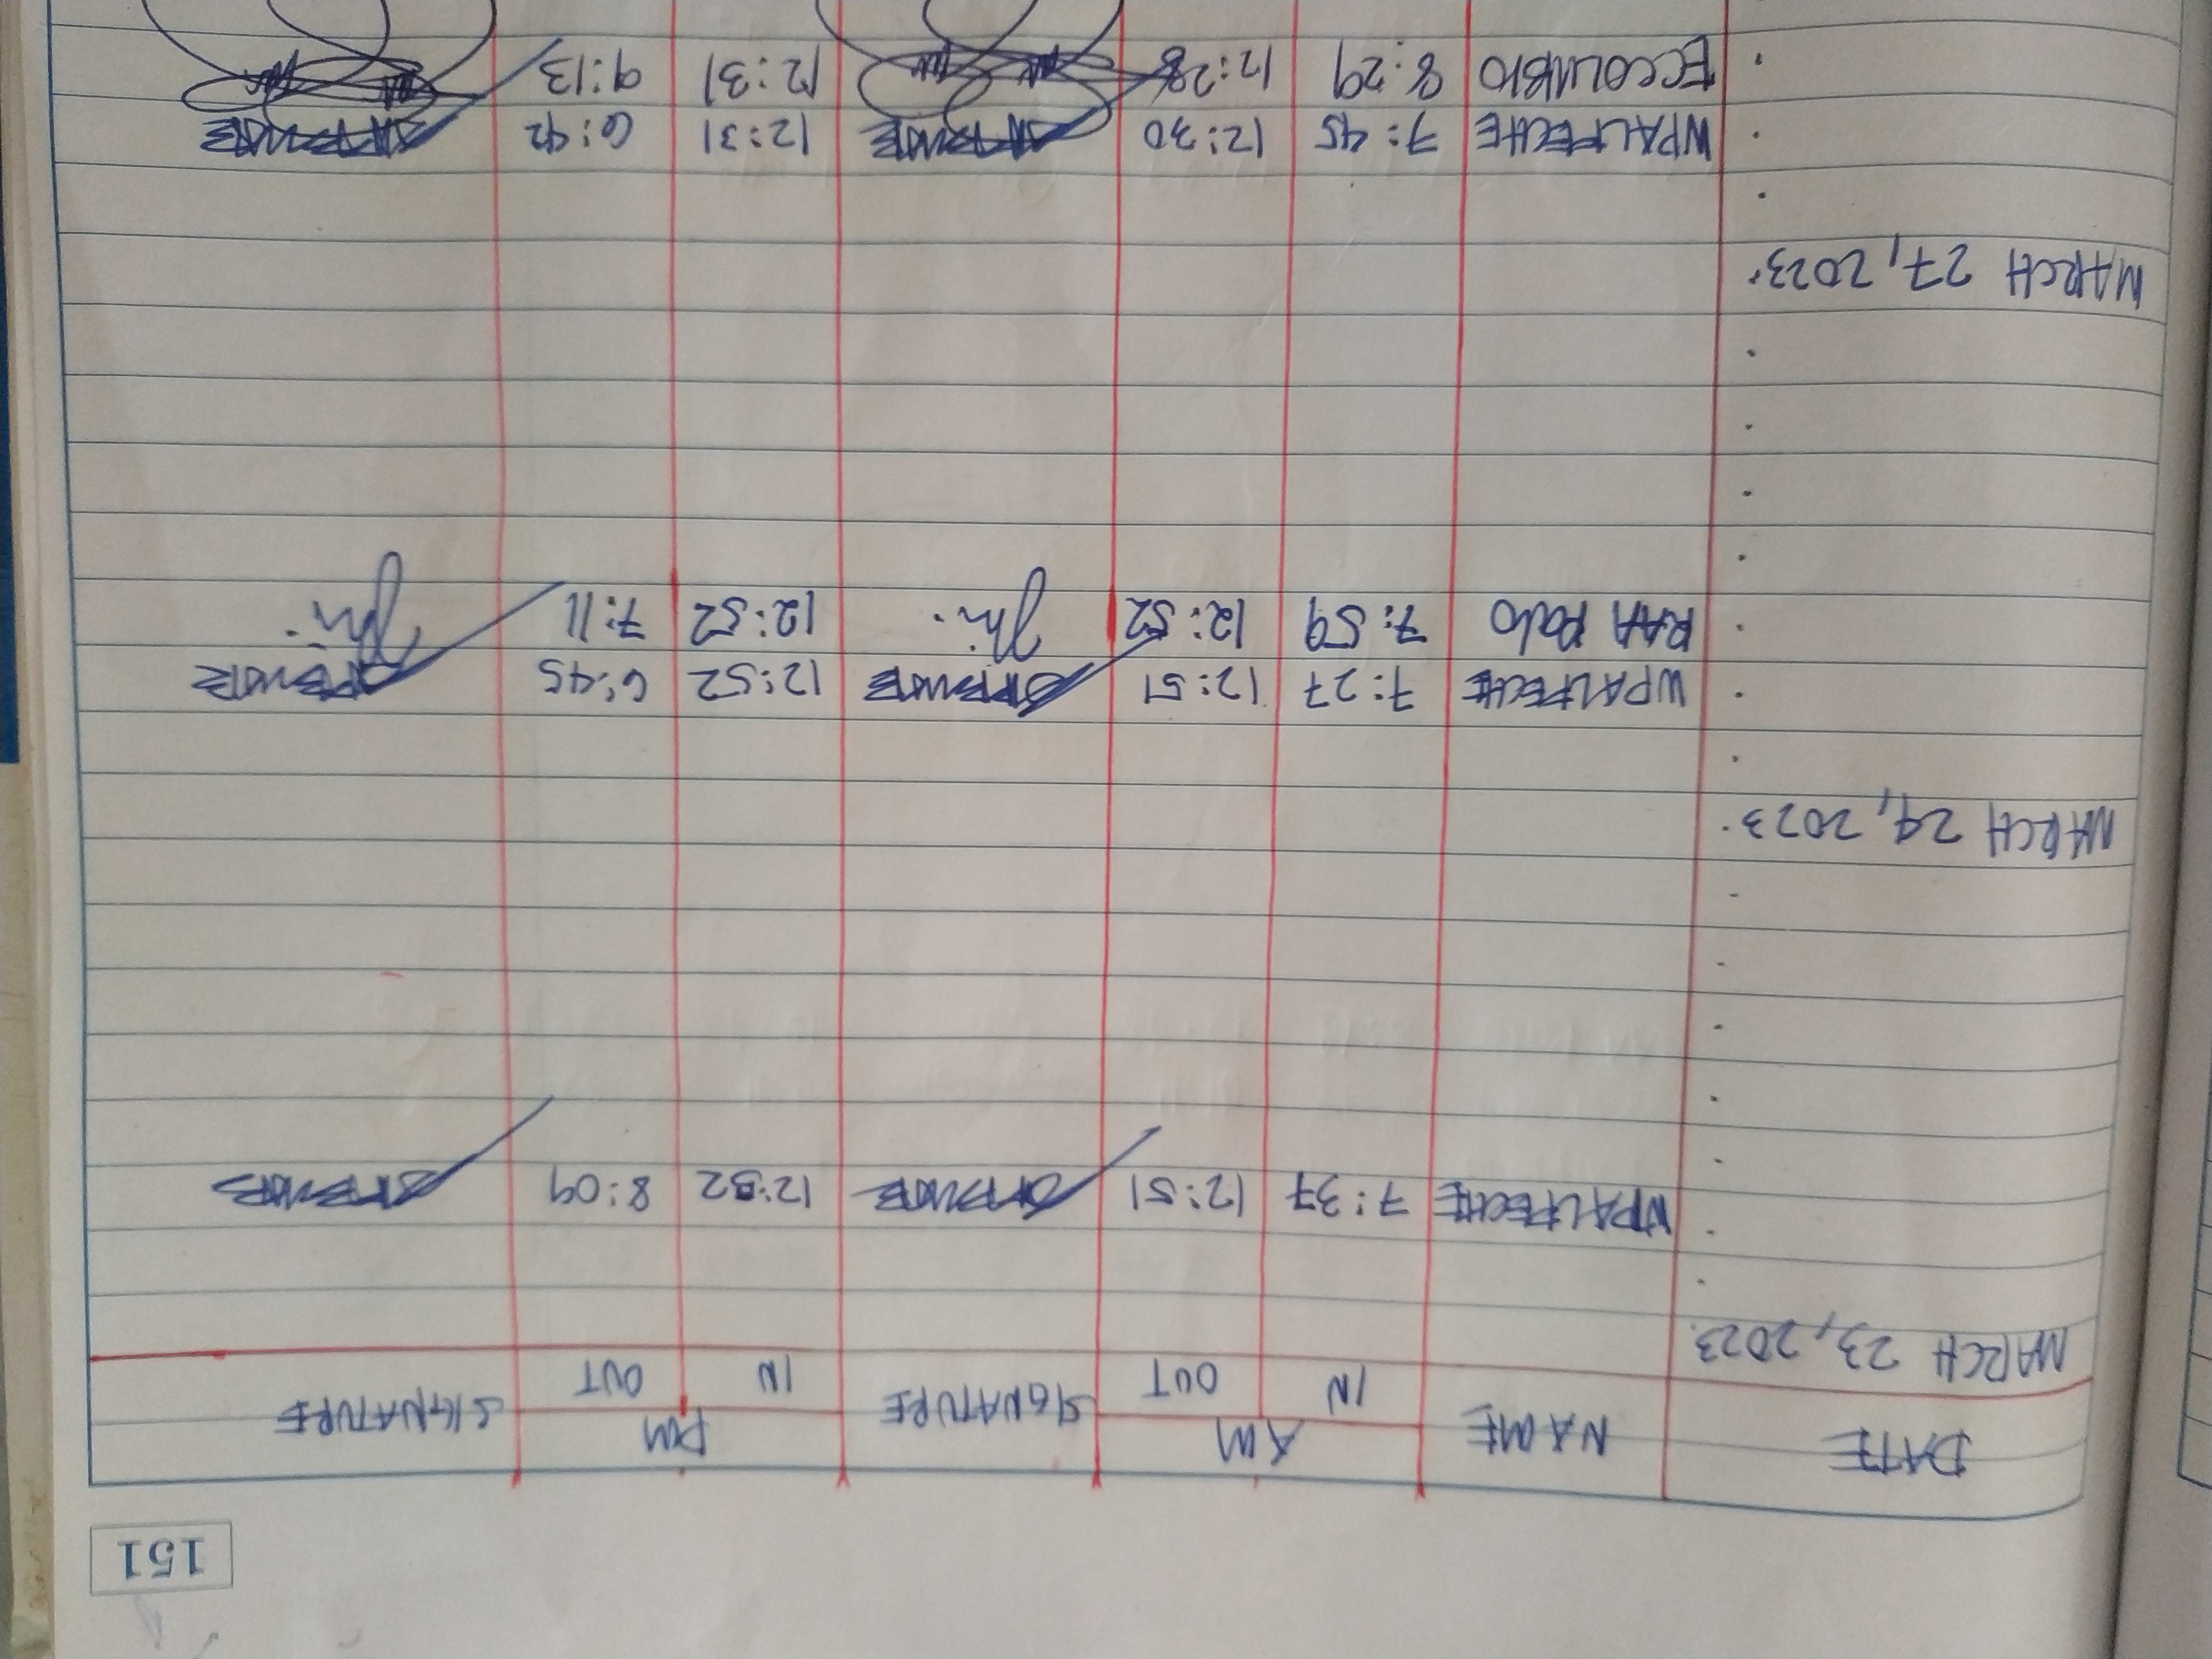 151
DATE NAME AM SIGNATURE PM SIGNATURE
IN OUT IN OUT
MARCH 23, 2023
WPALFECHE 7:37 12:51 12:52 8:09
MARCH 24, 2023
WPALFECHE 7:27 12:51 12:52 6:45
RAA Polo 7:59 12:52 12:52 7:11
MARCH 27, 2023
WPALFECHE 7:45 12:30 12:31 6:42
ECCOLUBIO 8:29 12:28 12:31 9:13